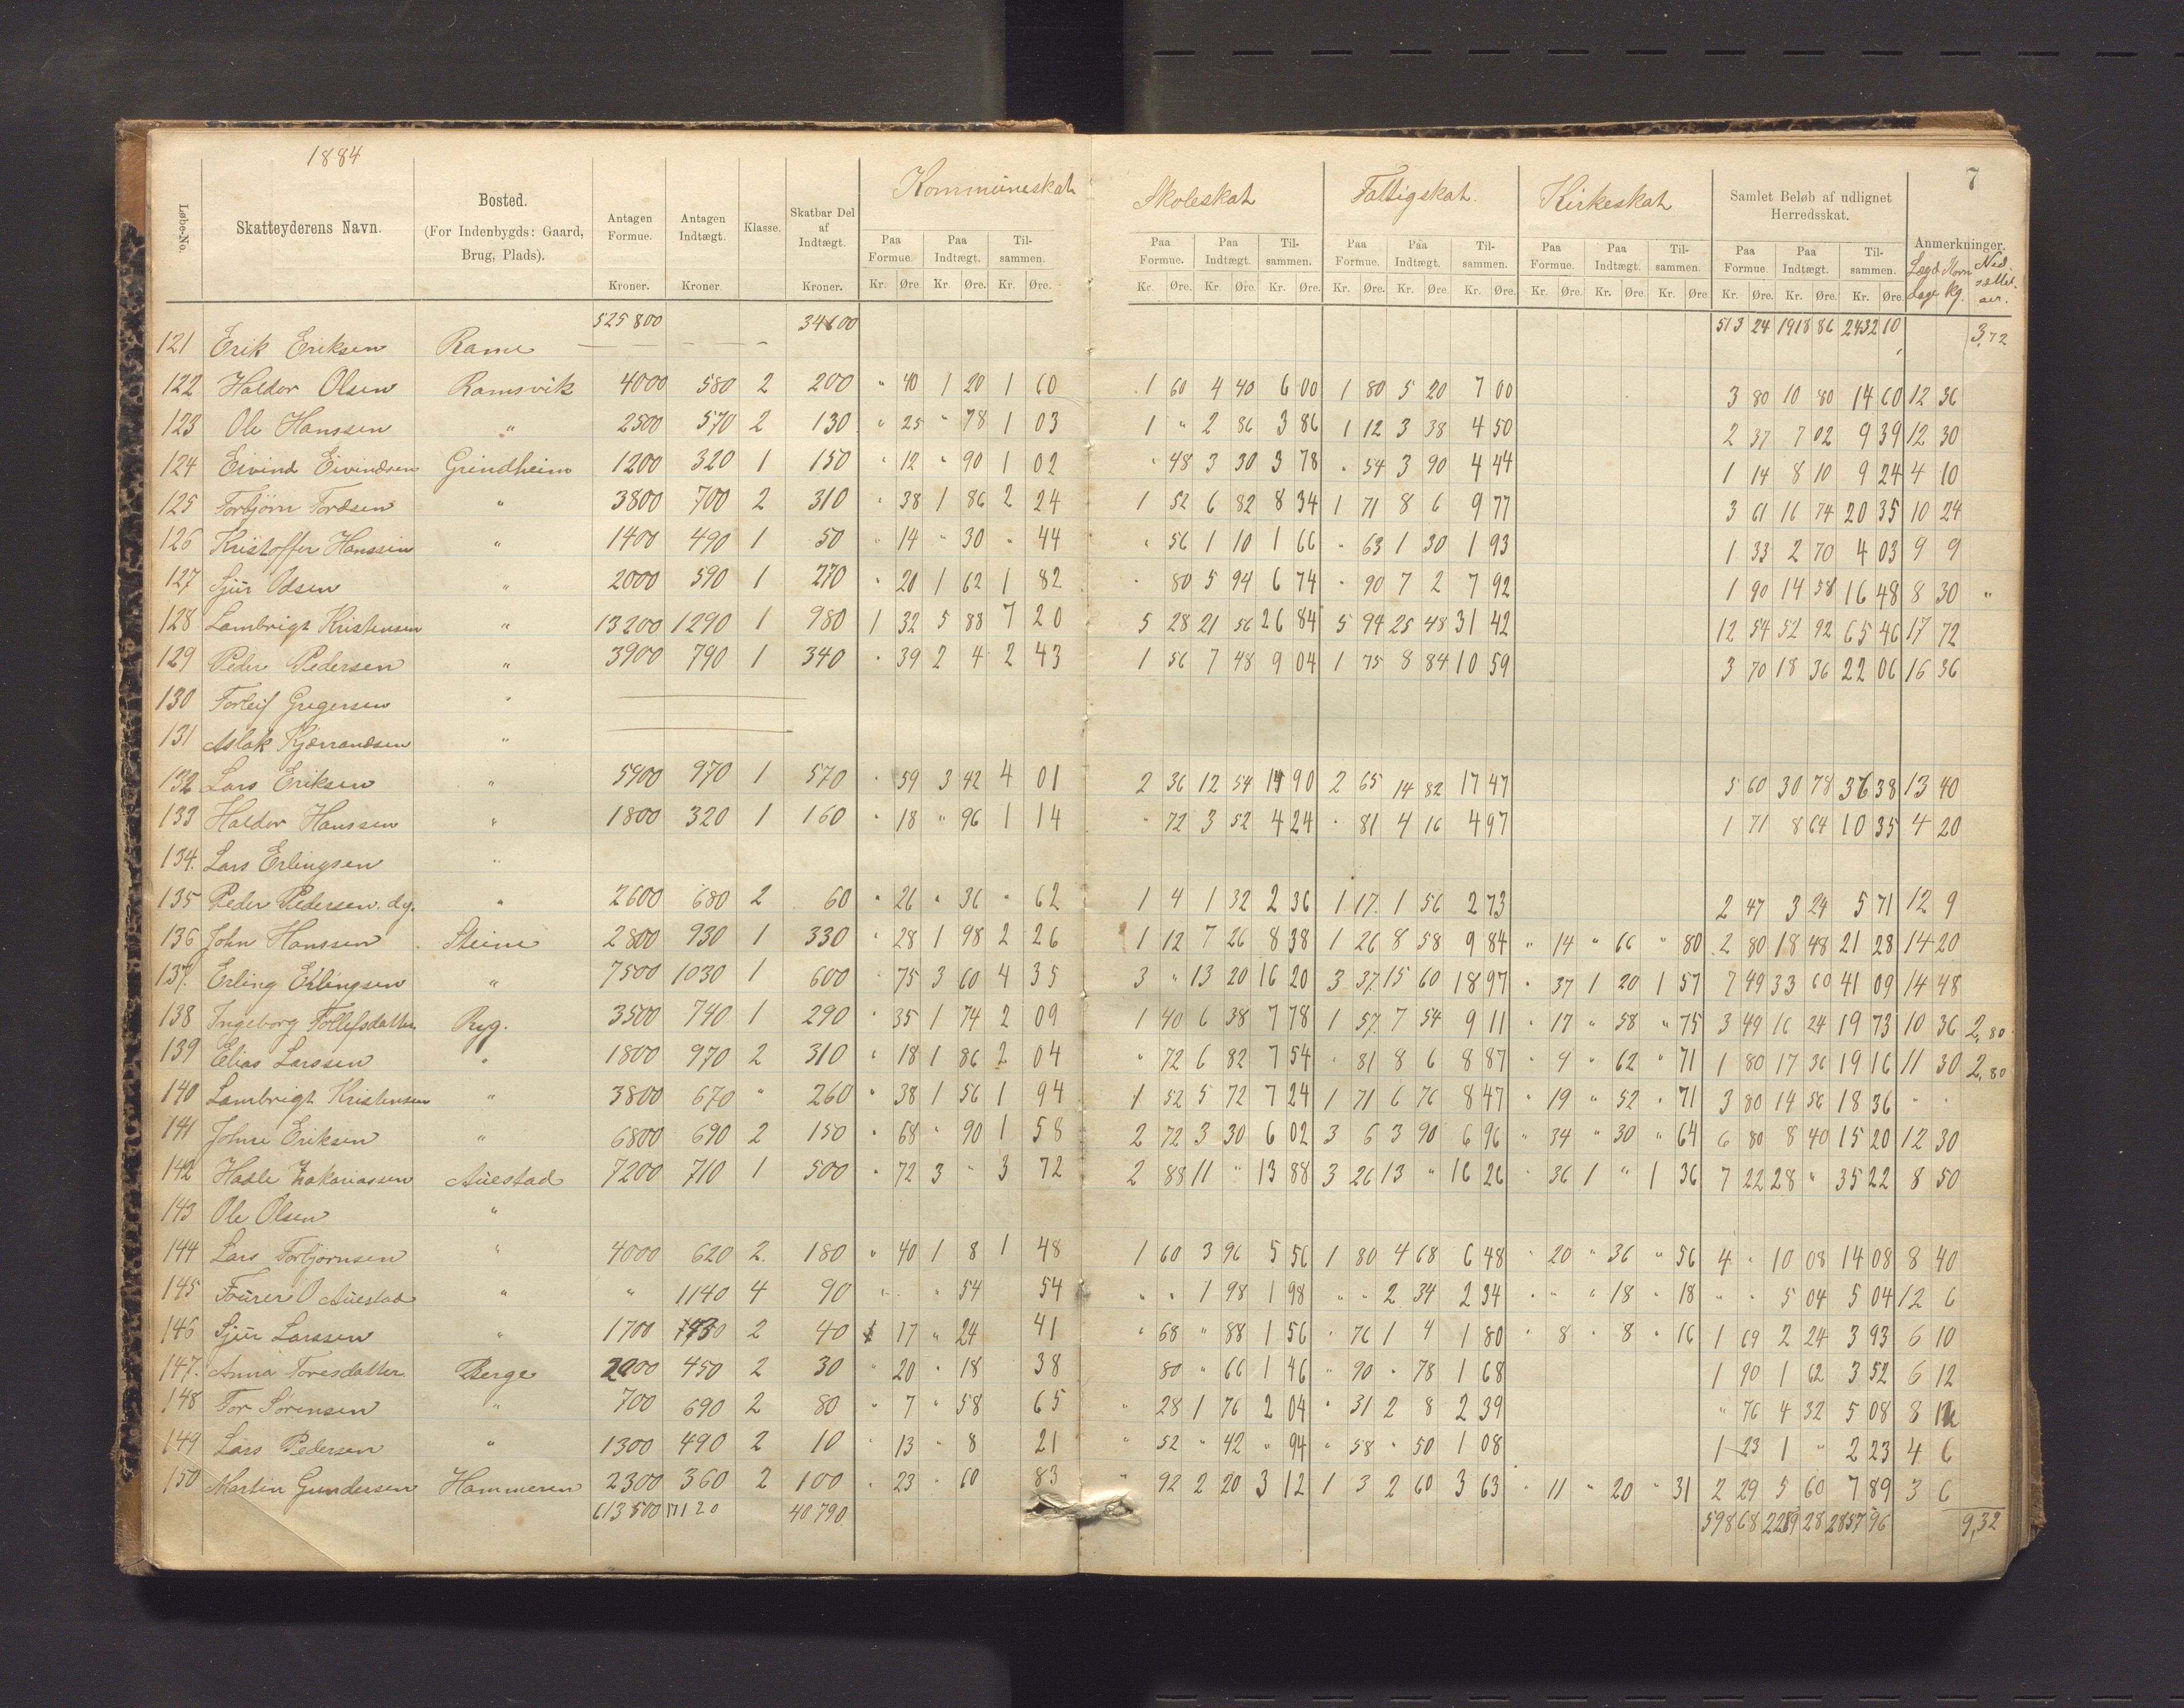 1884
7
Kommuneskat Skoleskat Fattigskat. Kirkeskat Samlet Beløb af udlignet Herredsskat.
Løbe-No. Skatteyderens Navn. Bosted. (For Indenbygds: Gaard, Brug, Plads). Antagen Formue. Antagen Indtægt. Klasse. Skatbar Del af Indtægt. Paa Formue. Paa Indtægt. Til-sammen. Paa Formue. Paa Indtægt. Til-sammen. Paa Formue. Paa Indtægt. Til-sammen. Paa Formue. Paa Indtægt. Til-sammen. Paa Formue. Paa Indtægt. Til-sammen. Anmerkninger.
Kroner. Kroner. Kroner. Kr. Øre. Kr. Øre. Kr. Øre. Kr. Øre. Kr. Øre. Kr. Øre. Kr. Øre. Kr. Øre. Kr. Øre. Kr. Øre. Kr. Øre. Kr. Øre. Kr. Øre. Kr. Øre. Kr. Øre. Lægd Dage Korn Kg.
525800 34600 513 24 1918 86 2432 10 3,72
121 Erik Eriksen Rame — — — — —
122 Haldor Olsen Ramsvik 4000 580 2 200 " 40 1 20 1 60 1 60 4 40 6 00 1 80 5 20 7 00 3 80 10 80 14 60 12 36
123 Ole Hanssen " 2500 570 2 130 " 25 " 78 1 03 1 " 2 86 3 86 1 12 3 38 4 50 2 37 7 02 9 39 12 30
124 Eivind Eivindsen Grindheim 1200 320 1 150 " 12 " 90 1 02 " 48 3 30 3 78 " 54 3 90 4 44 1 14 8 10 9 24 4 10
125 Torbjørn Tordsen " 3800 700 2 310 " 38 1 86 2 24 1 52 6 82 8 34 1 71 8 6 9 77 3 61 16 74 20 35 10 24
126 Kristoffer Hanssen " 1400 490 1 50 " 14 " 30 " 44 " 56 1 10 1 66 " 63 1 30 1 93 1 33 2 70 4 03 9 9
127 Sjur Odsen " 2000 590 1 270 " 20 1 62 1 82 " 80 5 94 6 74 " 90 7 2 7 92 1 90 14 58 16 48 8 30 "
128 Lambrigt Kristensen " 13200 1290 1 980 1 32 5 88 7 20 5 28 21 56 26 84 5 94 25 48 31 42 12 54 52 92 65 46 17 72
129 Peder Pedersen " 3900 790 1 340 " 39 2 4 2 43 1 56 7 48 9 04 1 75 8 84 10 59 3 70 18 36 22 06 16 36
130 Torleif Gregersen "
131 Aslak Kjærrandsen "
132 Lars Eriksen " 5900 970 1 570 " 59 3 42 4 01 2 36 12 54 14 90 2 65 14 82 17 47 5 60 30 78 36 38 13 40
133 Haldor Hanssen " 1800 320 1 160 " 18 " 96 1 14 " 72 3 52 4 24 " 81 4 16 4 97 1 71 8 64 10 35 4 20
134. Lars Erlingsen "
135 Peder Pedersen. dy. " 2600 680 2 60 " 26 " 36 " 62 1 4 1 32 2 36 1 17 1 56 2 73 2 47 3 24 5 71 12 9
136 John Hanssen Steine 2800 930 1 330 " 28 1 98 2 26 1 12 7 26 8 38 1 26 8 58 9 84 " 14 " 66 " 80 2 80 18 48 21 28 14 20
137. Erling Erlingsen " 7500 1030 1 600 " 75 3 60 4 35 3 " 13 20 16 20 3 37 15 60 18 97 " 37 1 20 1 57 7 49 33 60 41 09 14 48
138 Ingeborg Tollefsdatter Ryg. 3500 740 1 290 " 35 1 74 2 09 1 40 6 38 7 78 1 57 7 54 9 11 " 17 " 58 " 75 3 49 16 24 19 73 10 36 2,80
139 Elias Larssen " 1800 970 2 310 " 18 1 86 2 04 " 72 6 82 7 54 " 81 8 6 8 87 " 9 " 62 " 71 1 80 17 36 19 16 11 30 2,80
140 Lambrigt Kristensen " 3800 670 " 260 " 38 1 56 1 94 1 52 5 72 7 24 1 71 6 76 8 47 " 19 " 52 " 71 3 80 14 56 18 36 " "
141 Johne Eriksen " 6800 690 2 150 " 68 " 90 1 58 2 72 3 30 6 02 3 6 3 90 6 96 " 34 " 30 " 64 6 80 8 40 15 20 12 30
142 Hadle Zakariassen Auestad 7200 710 1 500 " 72 3 " 3 72 2 88 11 " 13 88 3 26 13 " 16 26 " 36 1 " 1 36 7 22 28 " 35 22 8 50
143 Ole Olsen "
144 Lars Torbjørnsen " 4000 620 2. 180 " 40 1 8 1 48 1 60 3 96 5 56 1 80 4 68 6 48 " 20 " 36 " 56 4 " 10 08 14 08 8 40
145 O Auestad " " 1140 4 90 " " " 54 54 " " 1 98 1 98 " " 2 34 2 34 " " " 18 " 18 " " 5 04 5 04 12 6
146 Sjur Larssen " 1700 430 2 40 17 " 24 41 " 68 " 88 1 56 " 76 1 4 1 80 " 8 " 8 " 16 1 69 2 24 3 93 6 10
147. Anna Toresdatter Berge 2000 450 2 30 " 20 " 18 38 80 " 66 1 46 " 90 " 78 1 68 1 90 1 62 3 52 6 12
148 Tor Sørensen " 700 690 2 80 " 7 " 58 65 " 28 1 76 2 04 " 31 2 8 2 39 " 76 4 32 5 08 8
149 Lars Pedersen " 1300 490 2 10 " 13 " 8 21 " 52 " 42 " 94 " 58 " 50 1 08 1 23 1 " 2 23 4 6
150 Martin Gundersen Hammeren 2300 360 2 100 " 23 " 60 83 " 92 2 20 3 12 1 3 2 60 3 63 " 11 " 20 " 31 2 29 5 60 7 89 3 6
613500 17120 40790 598 68 2259 28 2857 96 9,32